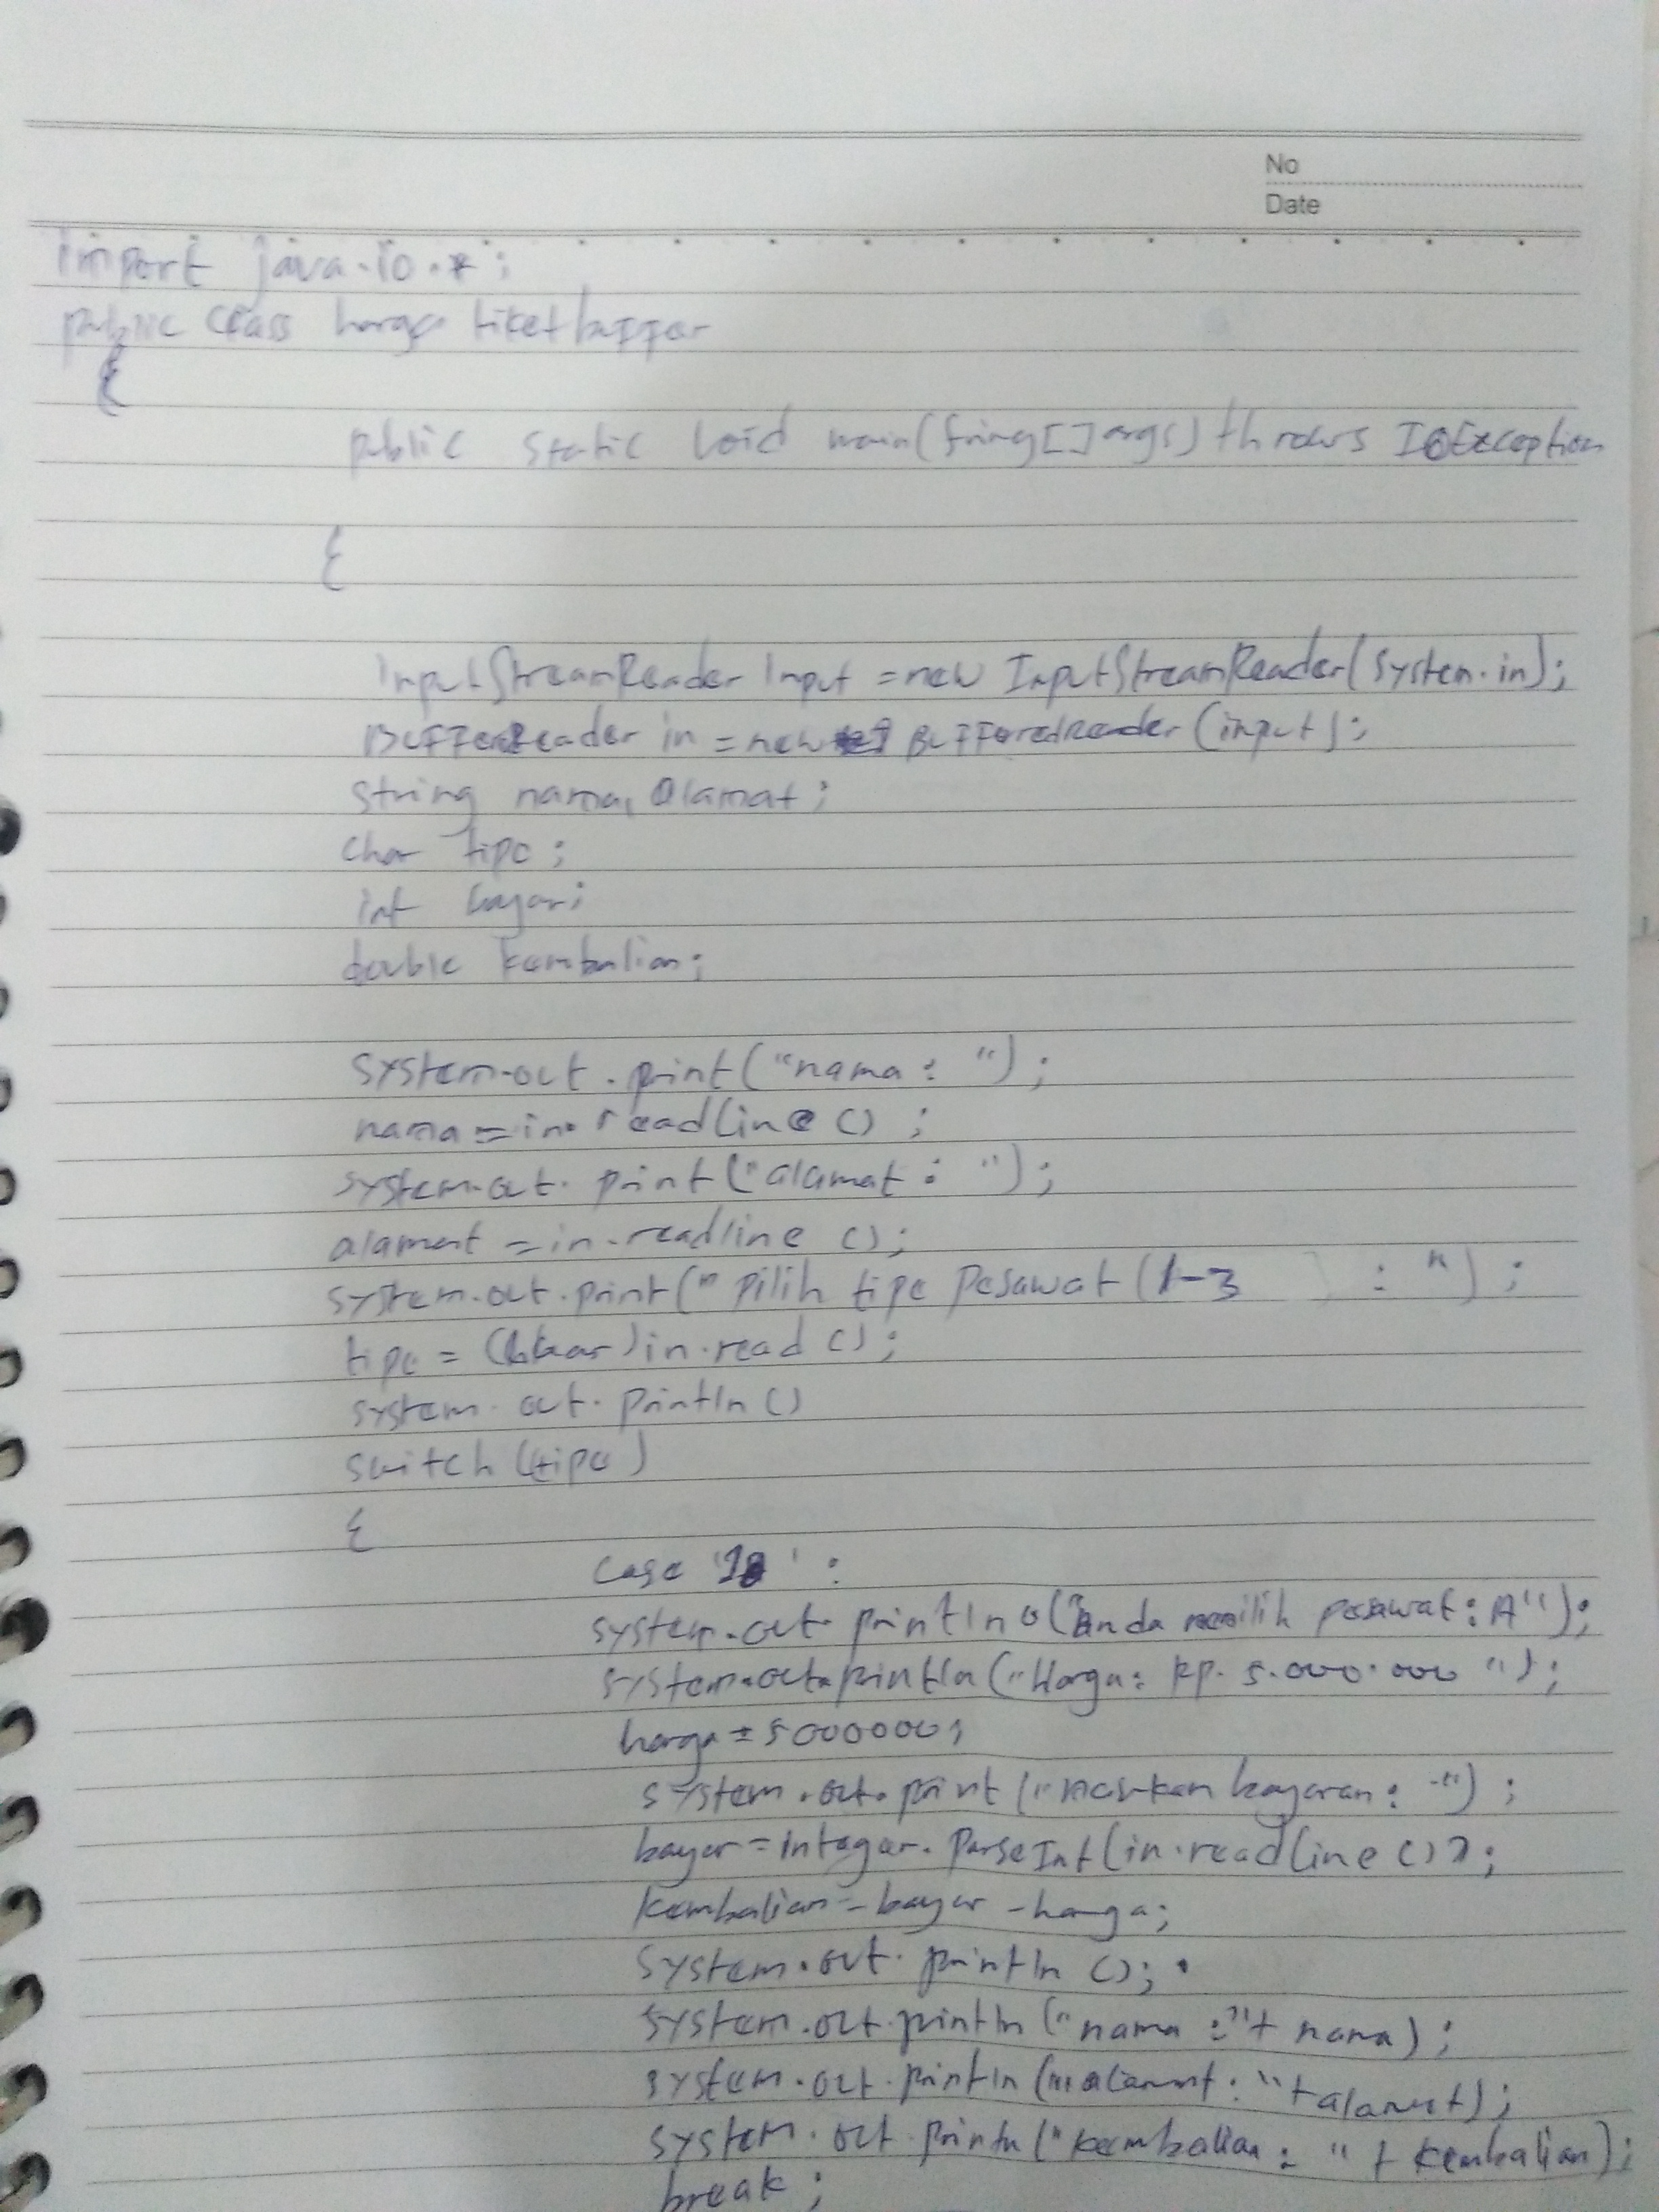 No
Date
import java.io.*;
public class harga tiketbuffer
{
public static void main(String[]args) throws IOException
{
InputStreamReader Input = new InputStreamReader(System.in);
BufferReader in = new BufferedReader (input);
string nama, alamat;
char tipe;
int bayar;
double kembalian;
system.out.print("nama : ");
nama = in.readline ();
system.out.print("alamat : ");
alamat = in.readline ();
system.out.print(" pilih tipe pesawat (1-3 ) : ");
tipe = (char)in.read ();
system.out.println ()
switch (tipe)
{
case '1' :
system.out.println ("Anda memilih pesawat : A");
system.out.println ("Harga: Rp. 5.000.000 ");
harga = 5000000;
system.out.print ("Masukan bayaran : ");
bayar = Integer.ParseInt(in.readline ());
kembalian = bayar - harga;
system.out.println ();
system.out.println (" nama :"+ nama);
system.out.println ("alamat : "+ alamat);
system.out.println ("kembalian : " + kembalian);
break ;